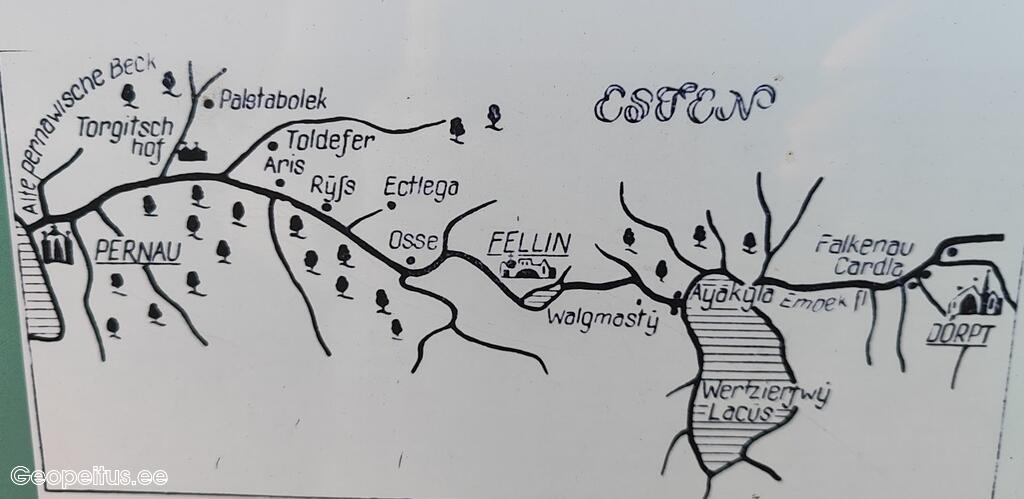 ESTEN
Alte pernawische Beck
Palstabolek
Torgitsch
hof
Toldefer
Aris
Rÿſs
Ectlega
Osse
FELLIN
PERNAU
Walgmastÿ
Aÿäkÿla
Falkenau
Cardla
Empek fl
DÖRPT
Wertzierſwÿ
Lacüs
Geopeitus.ee